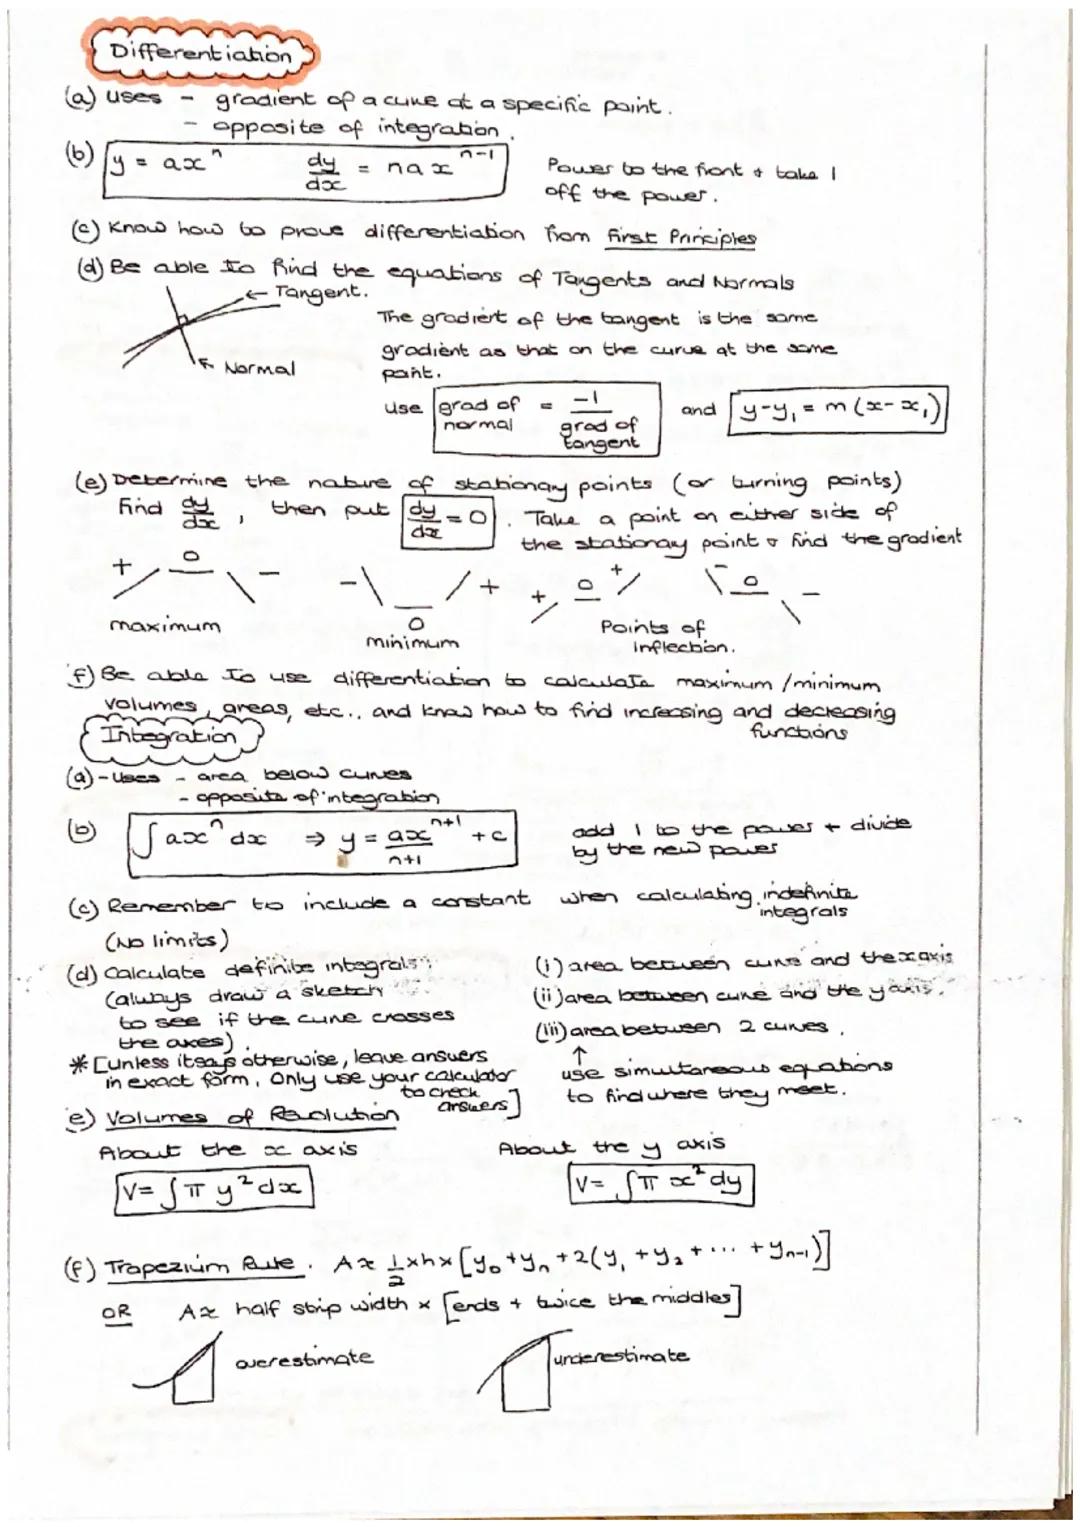 Differentiation
(a) uses - gradient of a curve at a specific point.
- opposite of integration.
(b) y = axⁿ dy/dx = naxⁿ⁻¹ Power to the front & take 1
off the power.
(c) Know how to prove differentiation from First Principles
(d) Be able to find the equations of Tangents and Normals
← Tangent.
The gradient of the tangent is the same
gradient as that on the curve at the same
point.
Normal
use grad of normal = -1/grad of tangent and y-y₁ = m(x-x₁)
(e) Determine the nature of stationary points (or turning points)
Find dy/dx, then put dy/dx = 0. Take a point on either side of
the stationary point & find the gradient
+ 0 - - 0 + + 0 + - 0 -
maximum
minimum
Points of
inflection.
f) Be able to use differentiation to calculate maximum/minimum
volumes, areas, etc., and know how to find increasing and decreasing
functions
Integration
(a) - Uses - area below curves
- opposite of integration
(b) ∫axⁿ dx ⇒ y = axⁿ⁺¹/n+1 + c add 1 to the power + divide
by the new power
(c) Remember to include a constant when calculating indefinite
integrals
(No limits)
(d) Calculate definite integrals
(always draw a sketch
to see if the curve crosses
the axes).
(i) area between curve and the x axis
(ii) area between curve and the y axis.
(iii) area between 2 curves.
↑
use simultaneous equations
to find where they meet.
* [unless it says otherwise, leave answers
in exact form. Only use your calculator
to check
answers]
e) Volumes of Revolution
About the x axis About the y axis
V = ∫π y² dx V = ∫π x² dy
(f) Trapezium Rule. A ≈ 1/2 × h × [y₀ + yₙ + 2(y₁ + y₂ + ... + yₙ₋₁)]
OR A ≈ half strip width × [ends + twice the middles]
overestimate underestimate